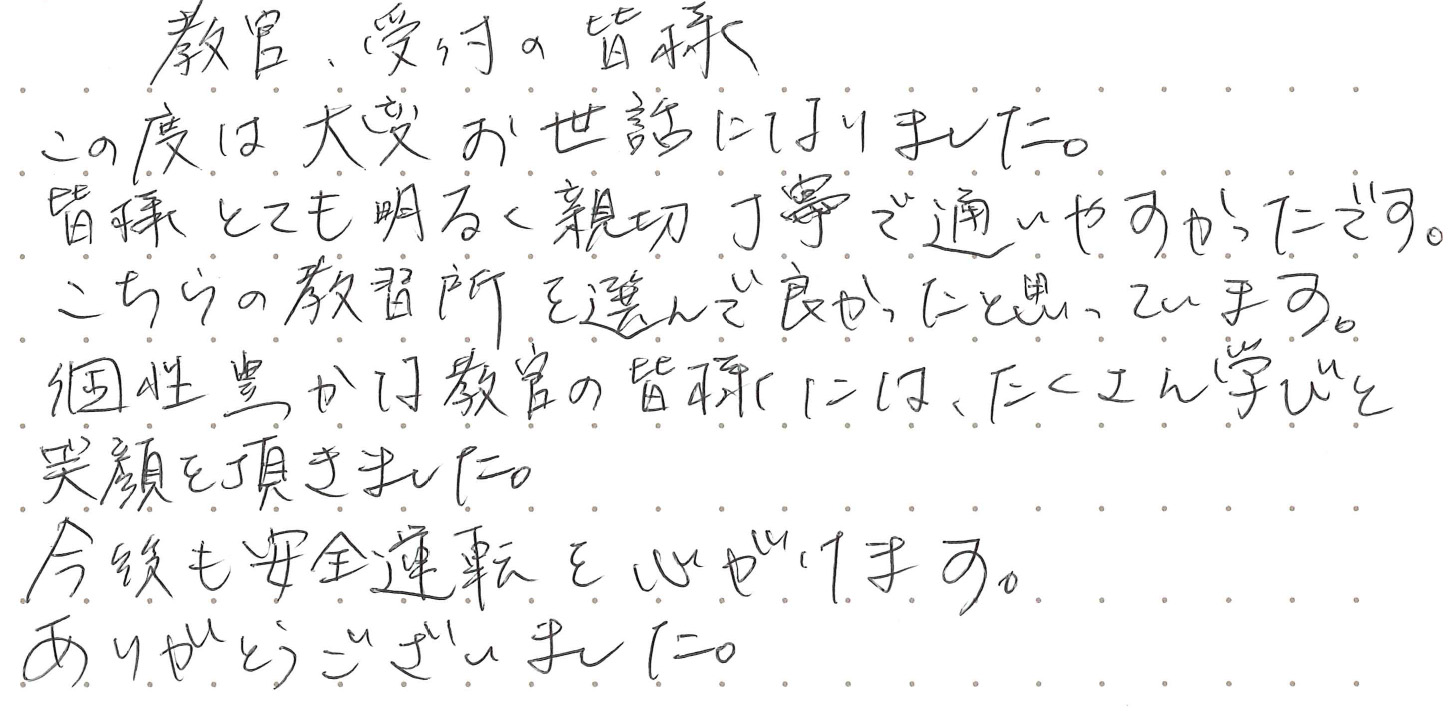 教官、受付の皆様
この度は大変お世話になりました。
皆様とても明るく親切丁寧で通いやすかったです。
こちらの教習所を選んで良かったと思っています。
個性豊かな教官の皆様には、たくさん学びと
笑顔を頂きました。
今後も安全運転を心がけます。
ありがとうございました。